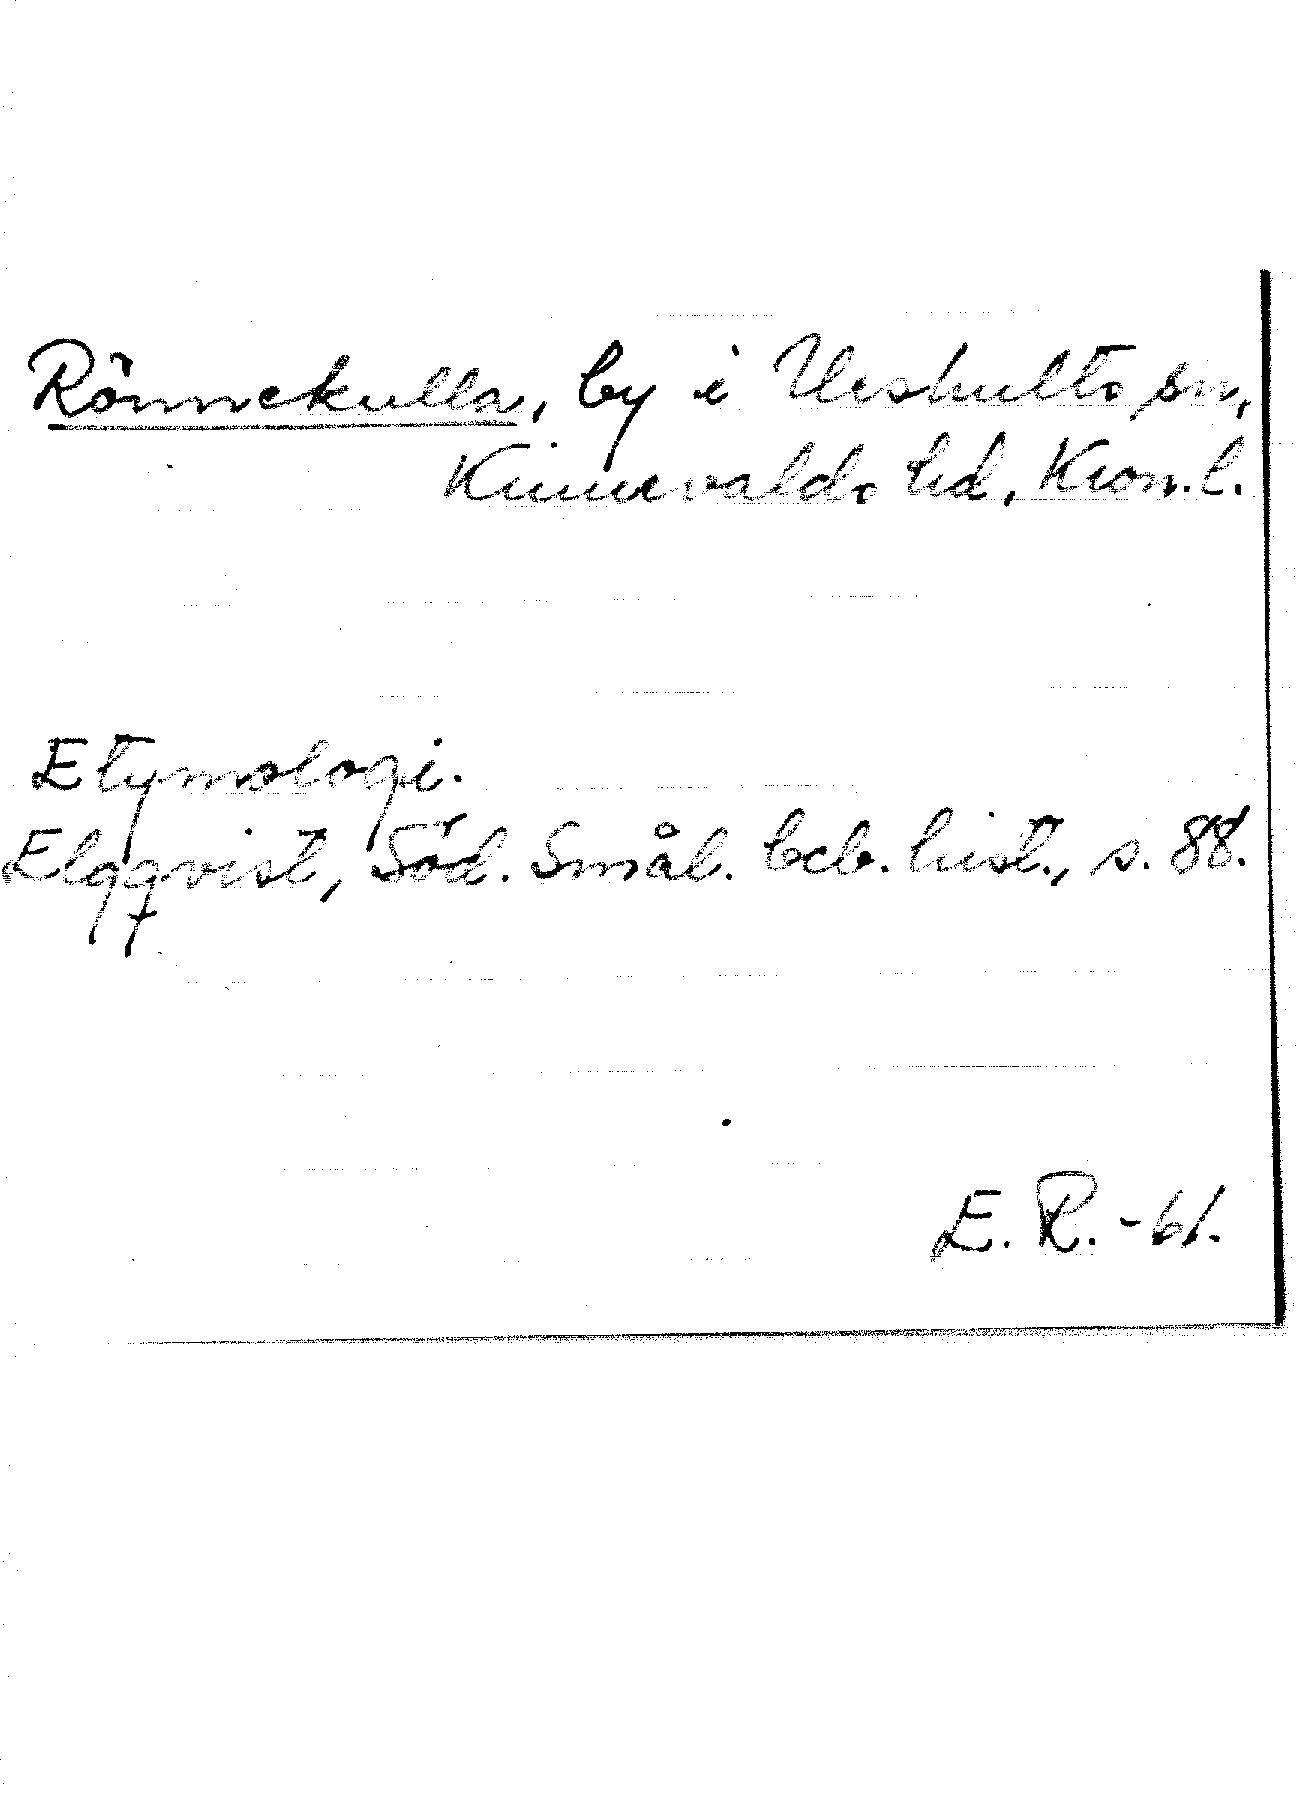 Rönnekulla, by i Urshults sn,
Kinnevalds hd, Kron. l.
Etymologi.
Elgqvist, Söd. Smål. beb. hist., s. 88.
E. R. -61.